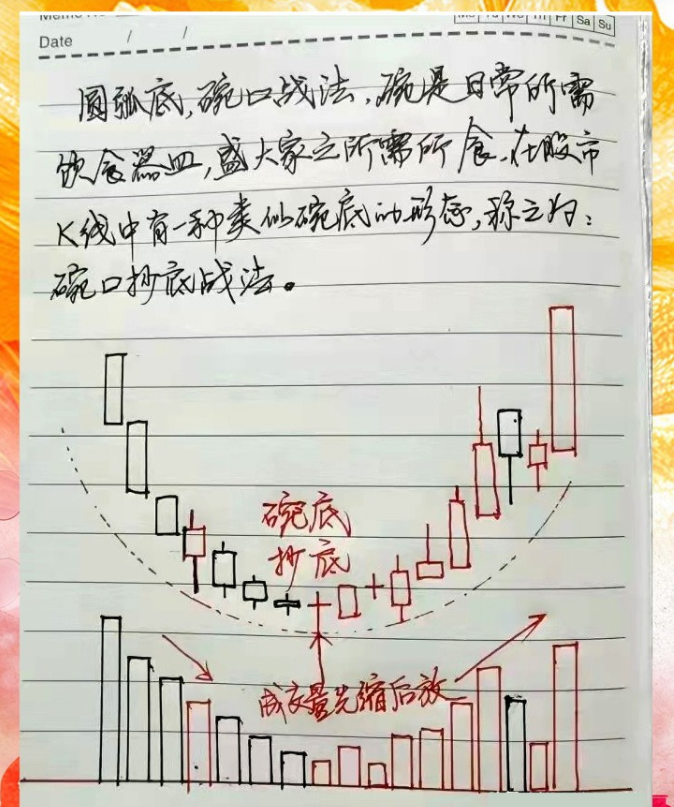 Date / /
Fr Sa Su
圆弧底,碗口战法,碗是日常所需
饮食器皿,盛大家之所需所食.在股市
K线中有一种类似碗底的形态,称之为:
碗口抄底战法。
碗底
抄底
成交量先缩后放